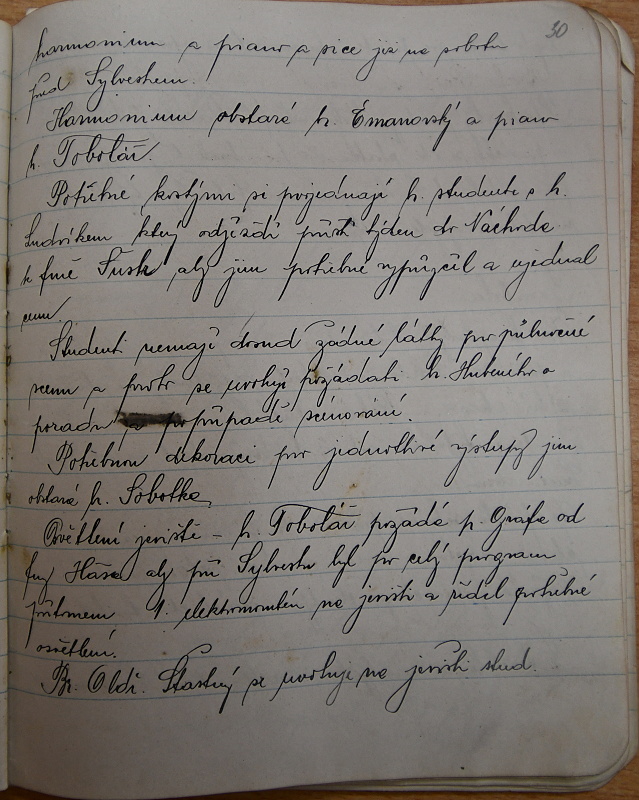 30
harmonium a piano a sice již na sobotu
před Sylvestrem.
Harmonium obstará br. Emanovský a piano
br. Tobolář.
Potřebné kostými si projednají br. studenti s br.
Ludvíkem který odjíždí příští týden do Náchoda
k firmě Tusk aby jim potřebné vypůjčil a ujednal
cenu.
Studenti nemají dosud žádné látky pro půlnoční
scenu a proto se uvolují požádati br. Hubeného o
poradu případě scénování.
Potřebnou dekoraci pro jednotlivé výstupy jim
obstará br. Sobotka,
Osvětlení jeviště – br. Tobolář požádá p. Gráfa od
fmy Hása aby při Sylvestru byl po celý program
přítomen 1. elektromontér na jevišti a řídil potřebné
osvětlení.
Br. Oldř. Šťastný se uvoluje na jevišti stud.